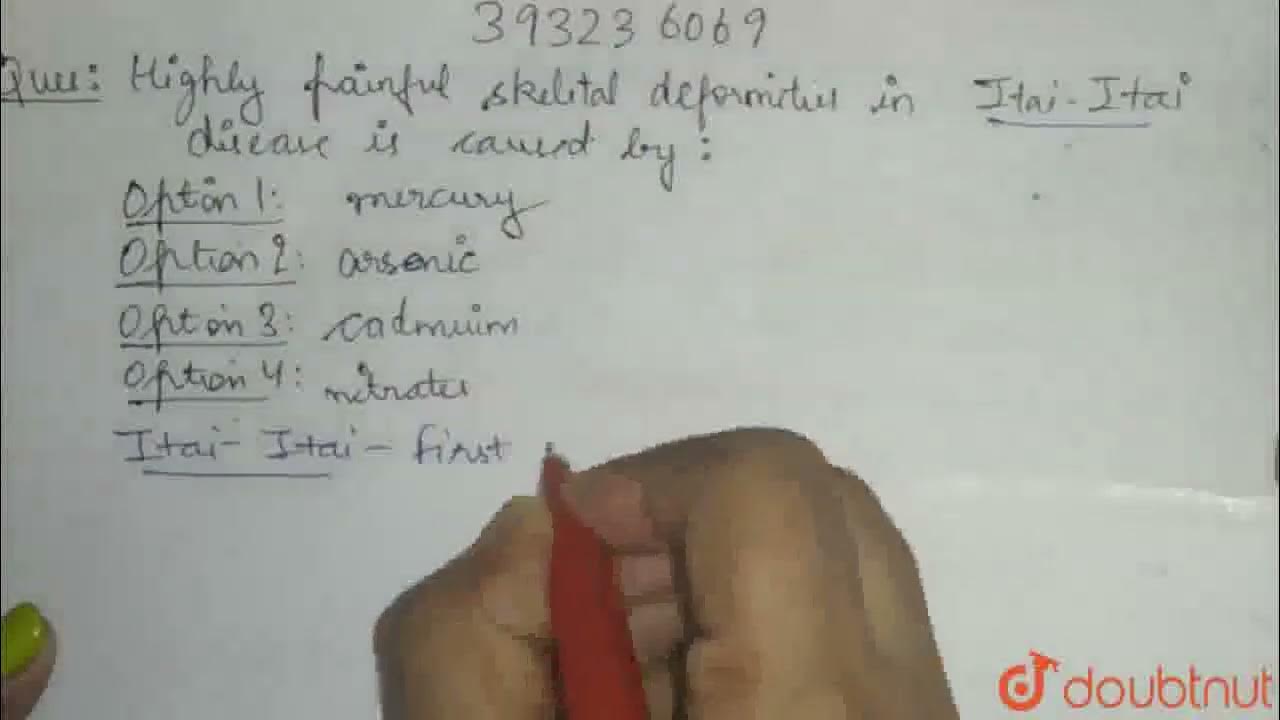 39323 6069
Ques: Highly painful skeletal deformities in Itai-Itai
disease is caused by:
Option 1: mercury
Option 2: arsenic
Option 3: cadmuim
Option 4: nitrates
Itai- Itai - first
doubtnut